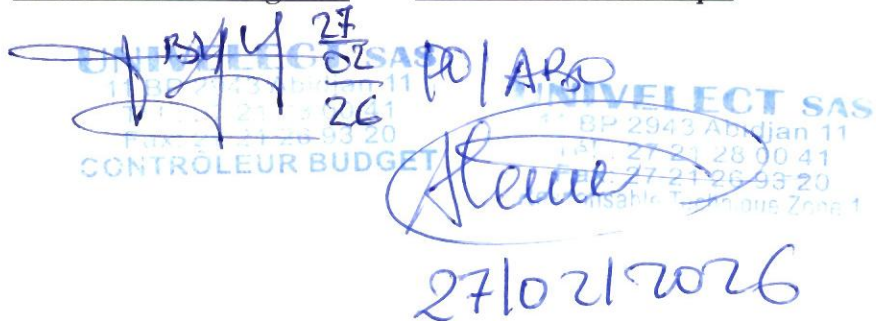 BYY 27
02
26
UNIVELECT SAS
11 BP 2943 Abidjan 11
Fax: 27 21 26 93 20
CONTRÔLEUR BUDGET
PO/ABO
UNIVELECT SAS
11 BP 2943 Abidjan 11
Tél : 27 21 28 00 41
Fax: 27 21 26 93 20
Responsable Technique Zone 1
27/02/2026